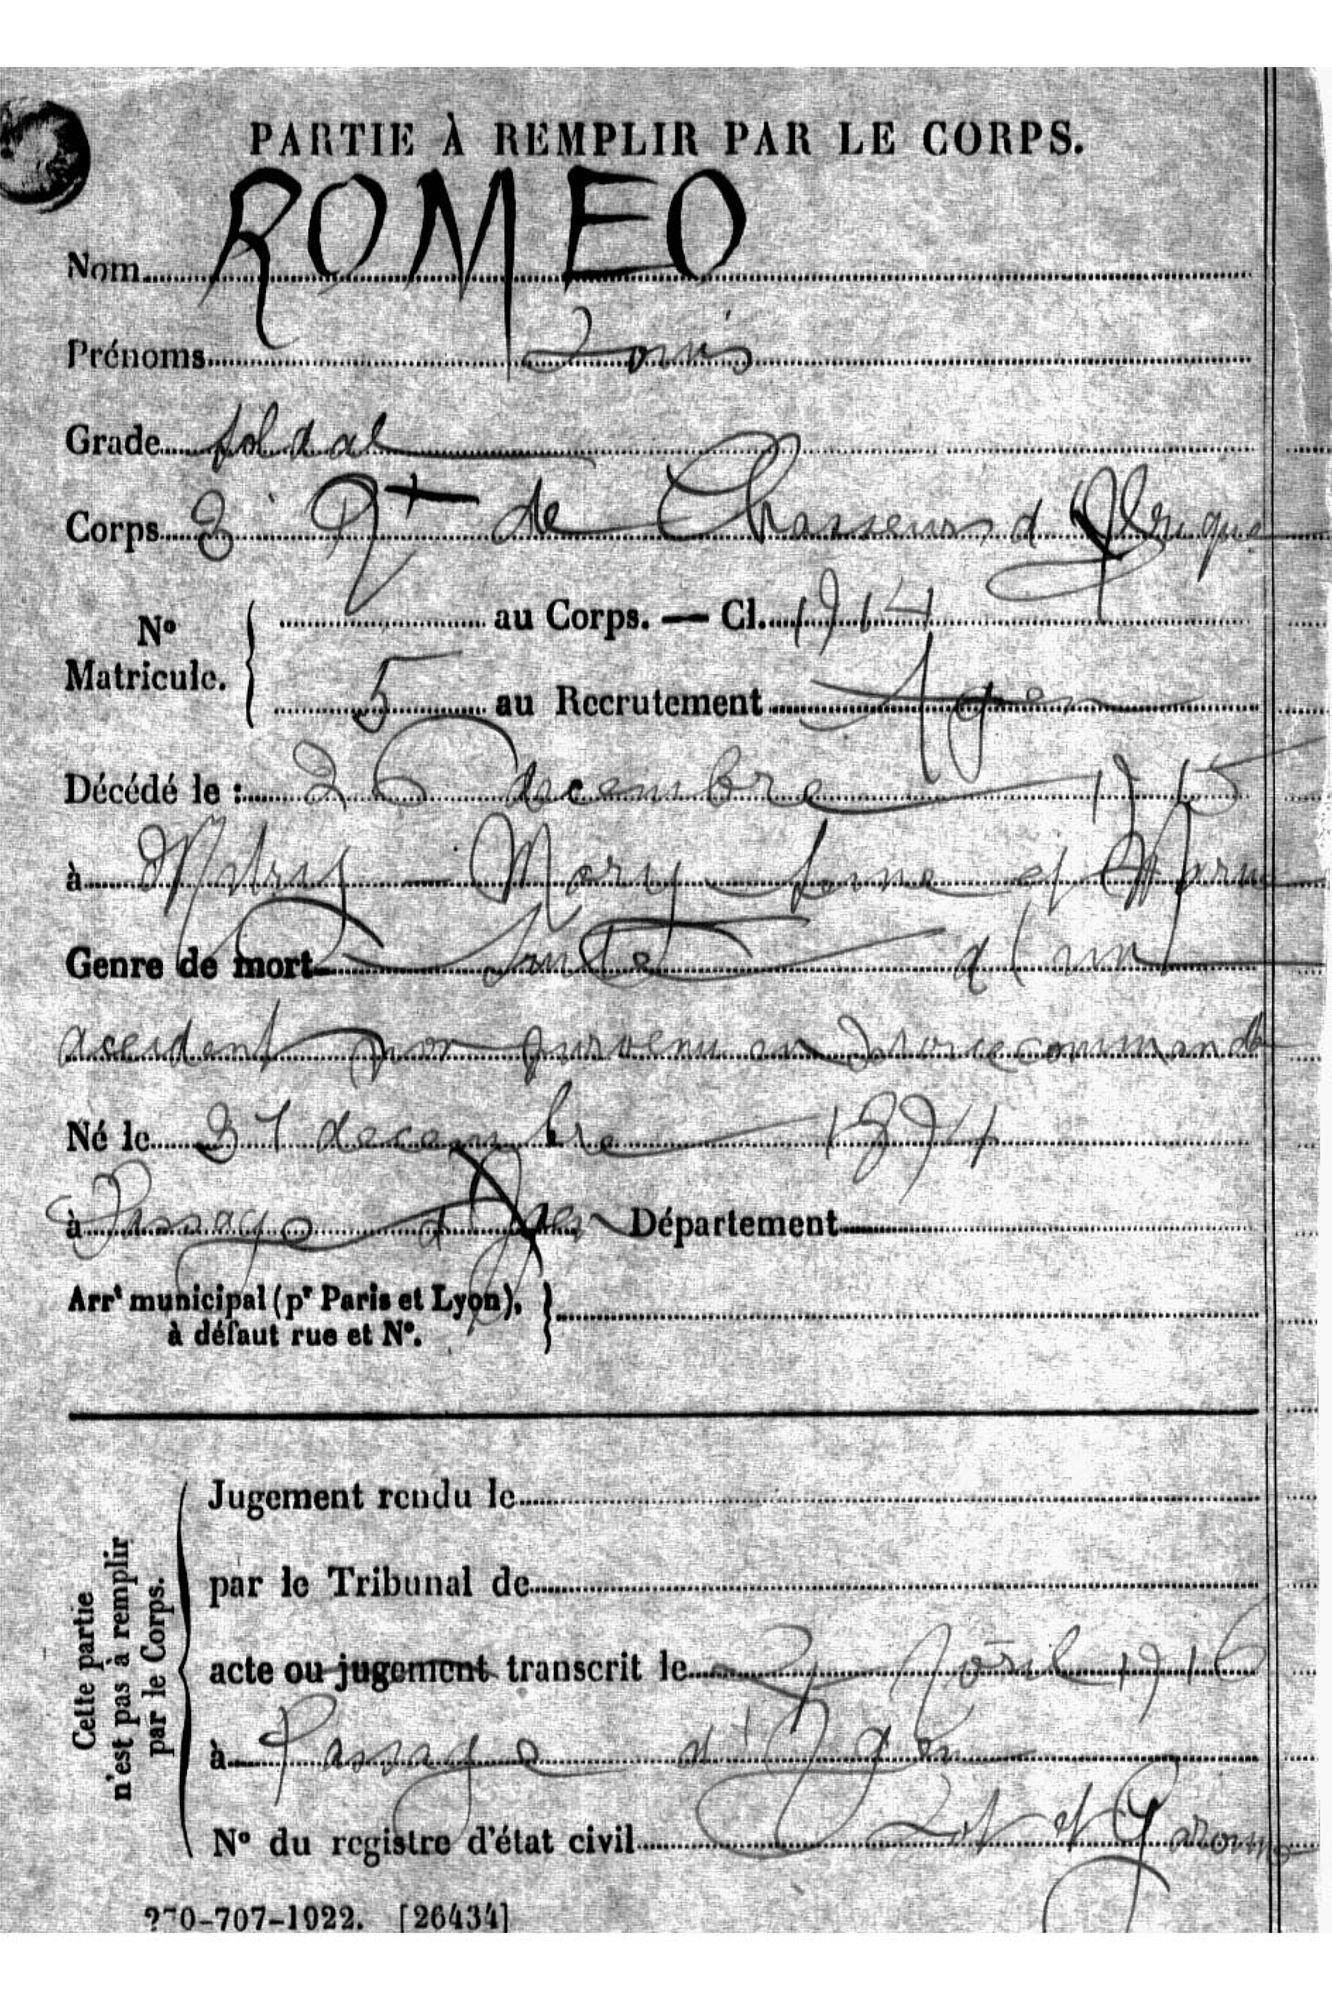 PARTIE À REMPLIR PAR LE CORPS.
Nom ROMEO
Prénoms Louis
Grade soldat
Corps 3 Rt de Chasseurs d'Afrique
No Matricule. au Corps. — Cl. 1914
5 au Recrutement Agen
Décédé le : 26 decembre 1915
à Mitry - Mory Seine et Marne
Genre de mort Suite d'un
accident non survenu en service commandé
Né le 31 decembre 1894
à Passage d'Agen Département
Arrt municipal (pr Paris et Lyon),
à défaut rue et No.
Cette partie
n'est pas à remplir
par le Corps.
Jugement rendu le
par le Tribunal de
acte ou jugement transcrit le Avril 1916
à Passage d'Agen
No du registre d'état civil Lot et Garonne
270-707-1922. [26434]